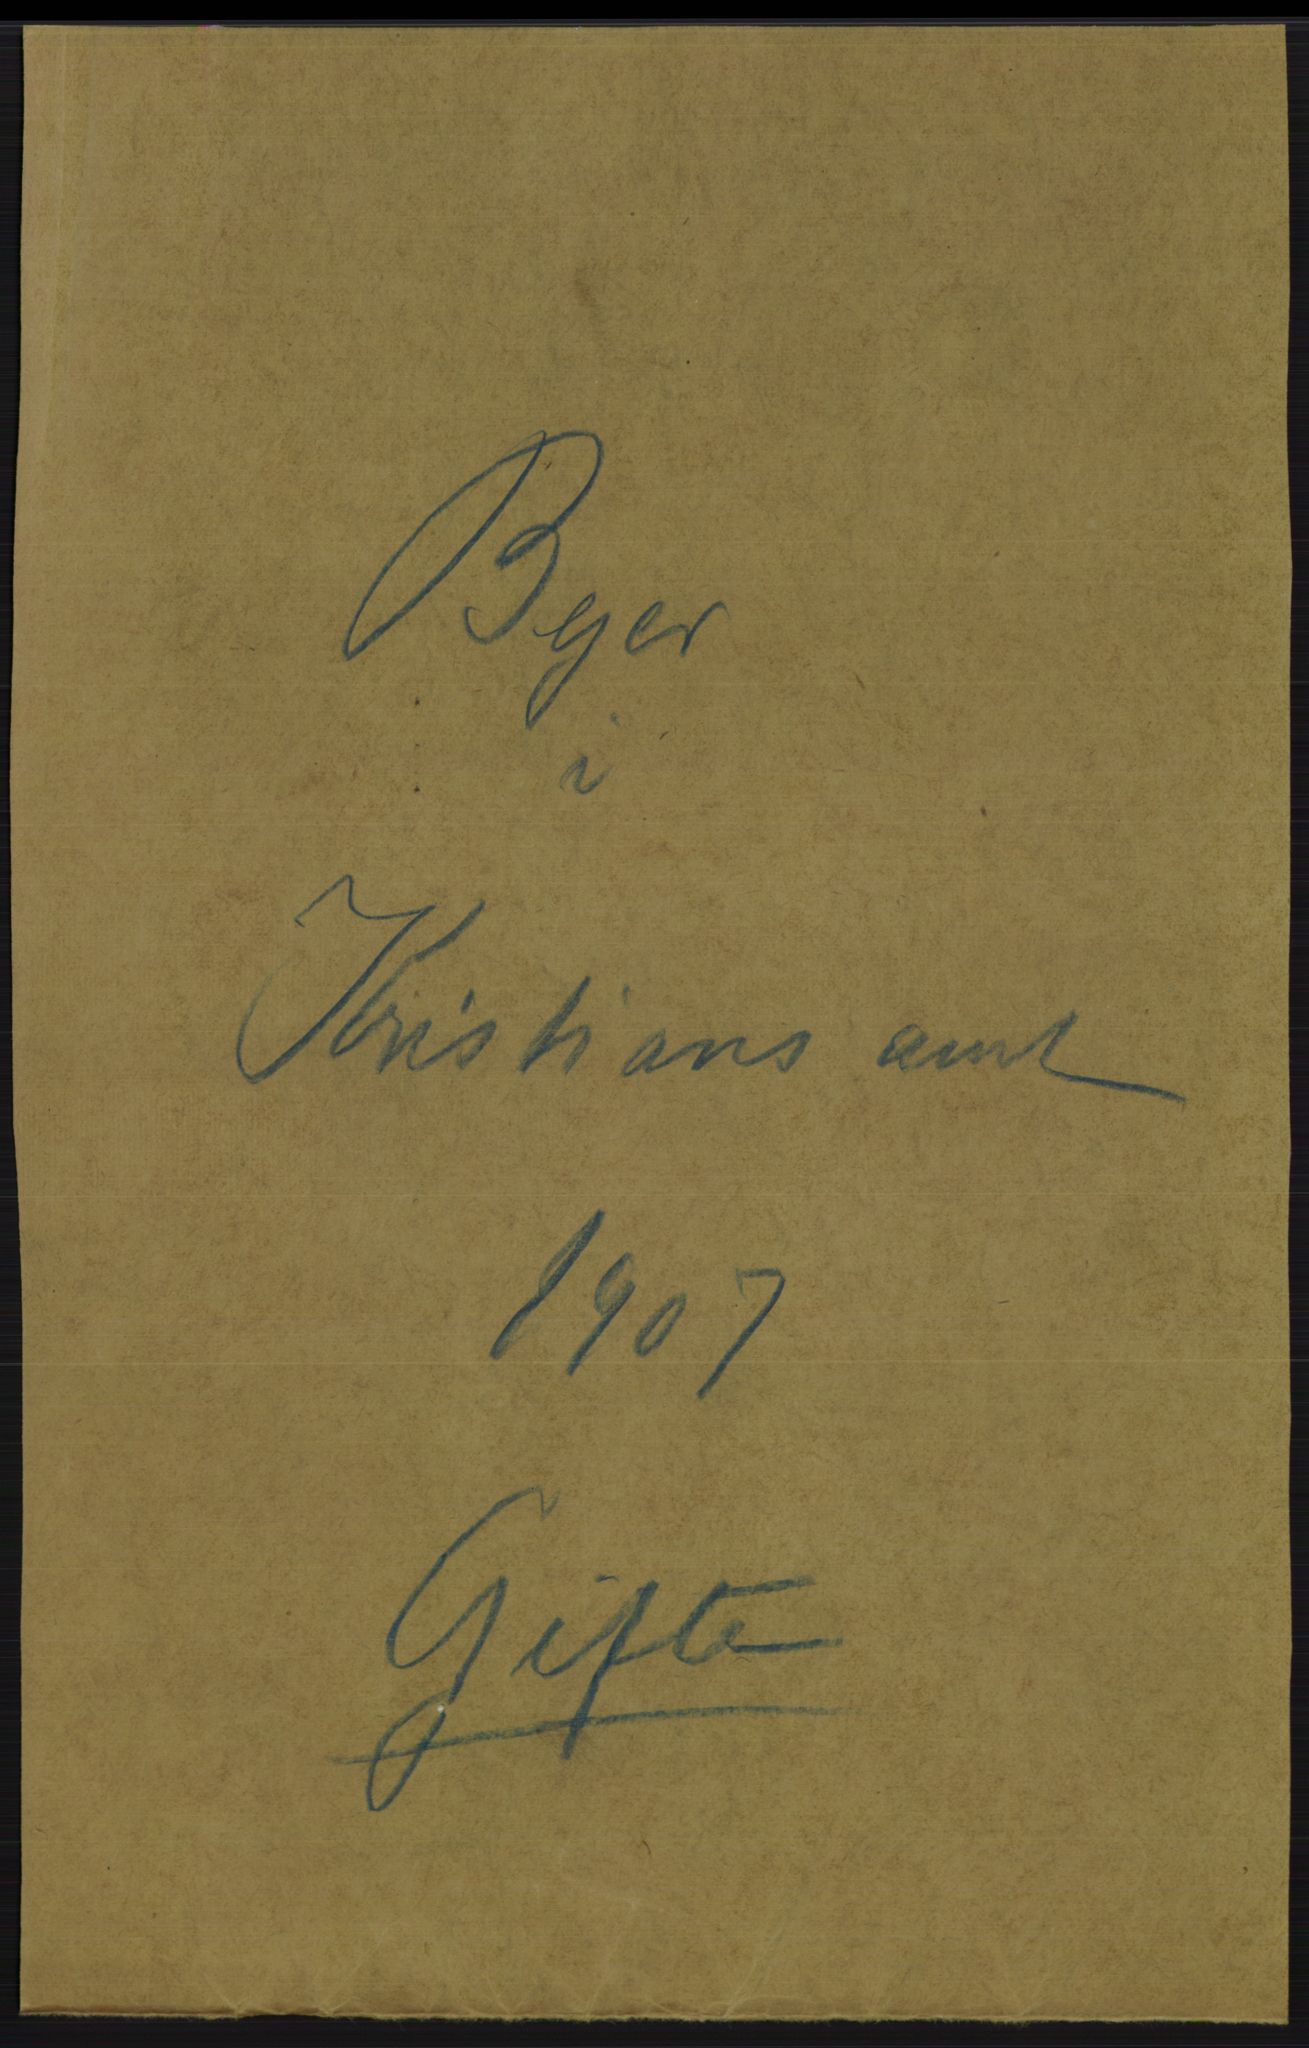 Byer
i
Kristians amt
1907
Gifte